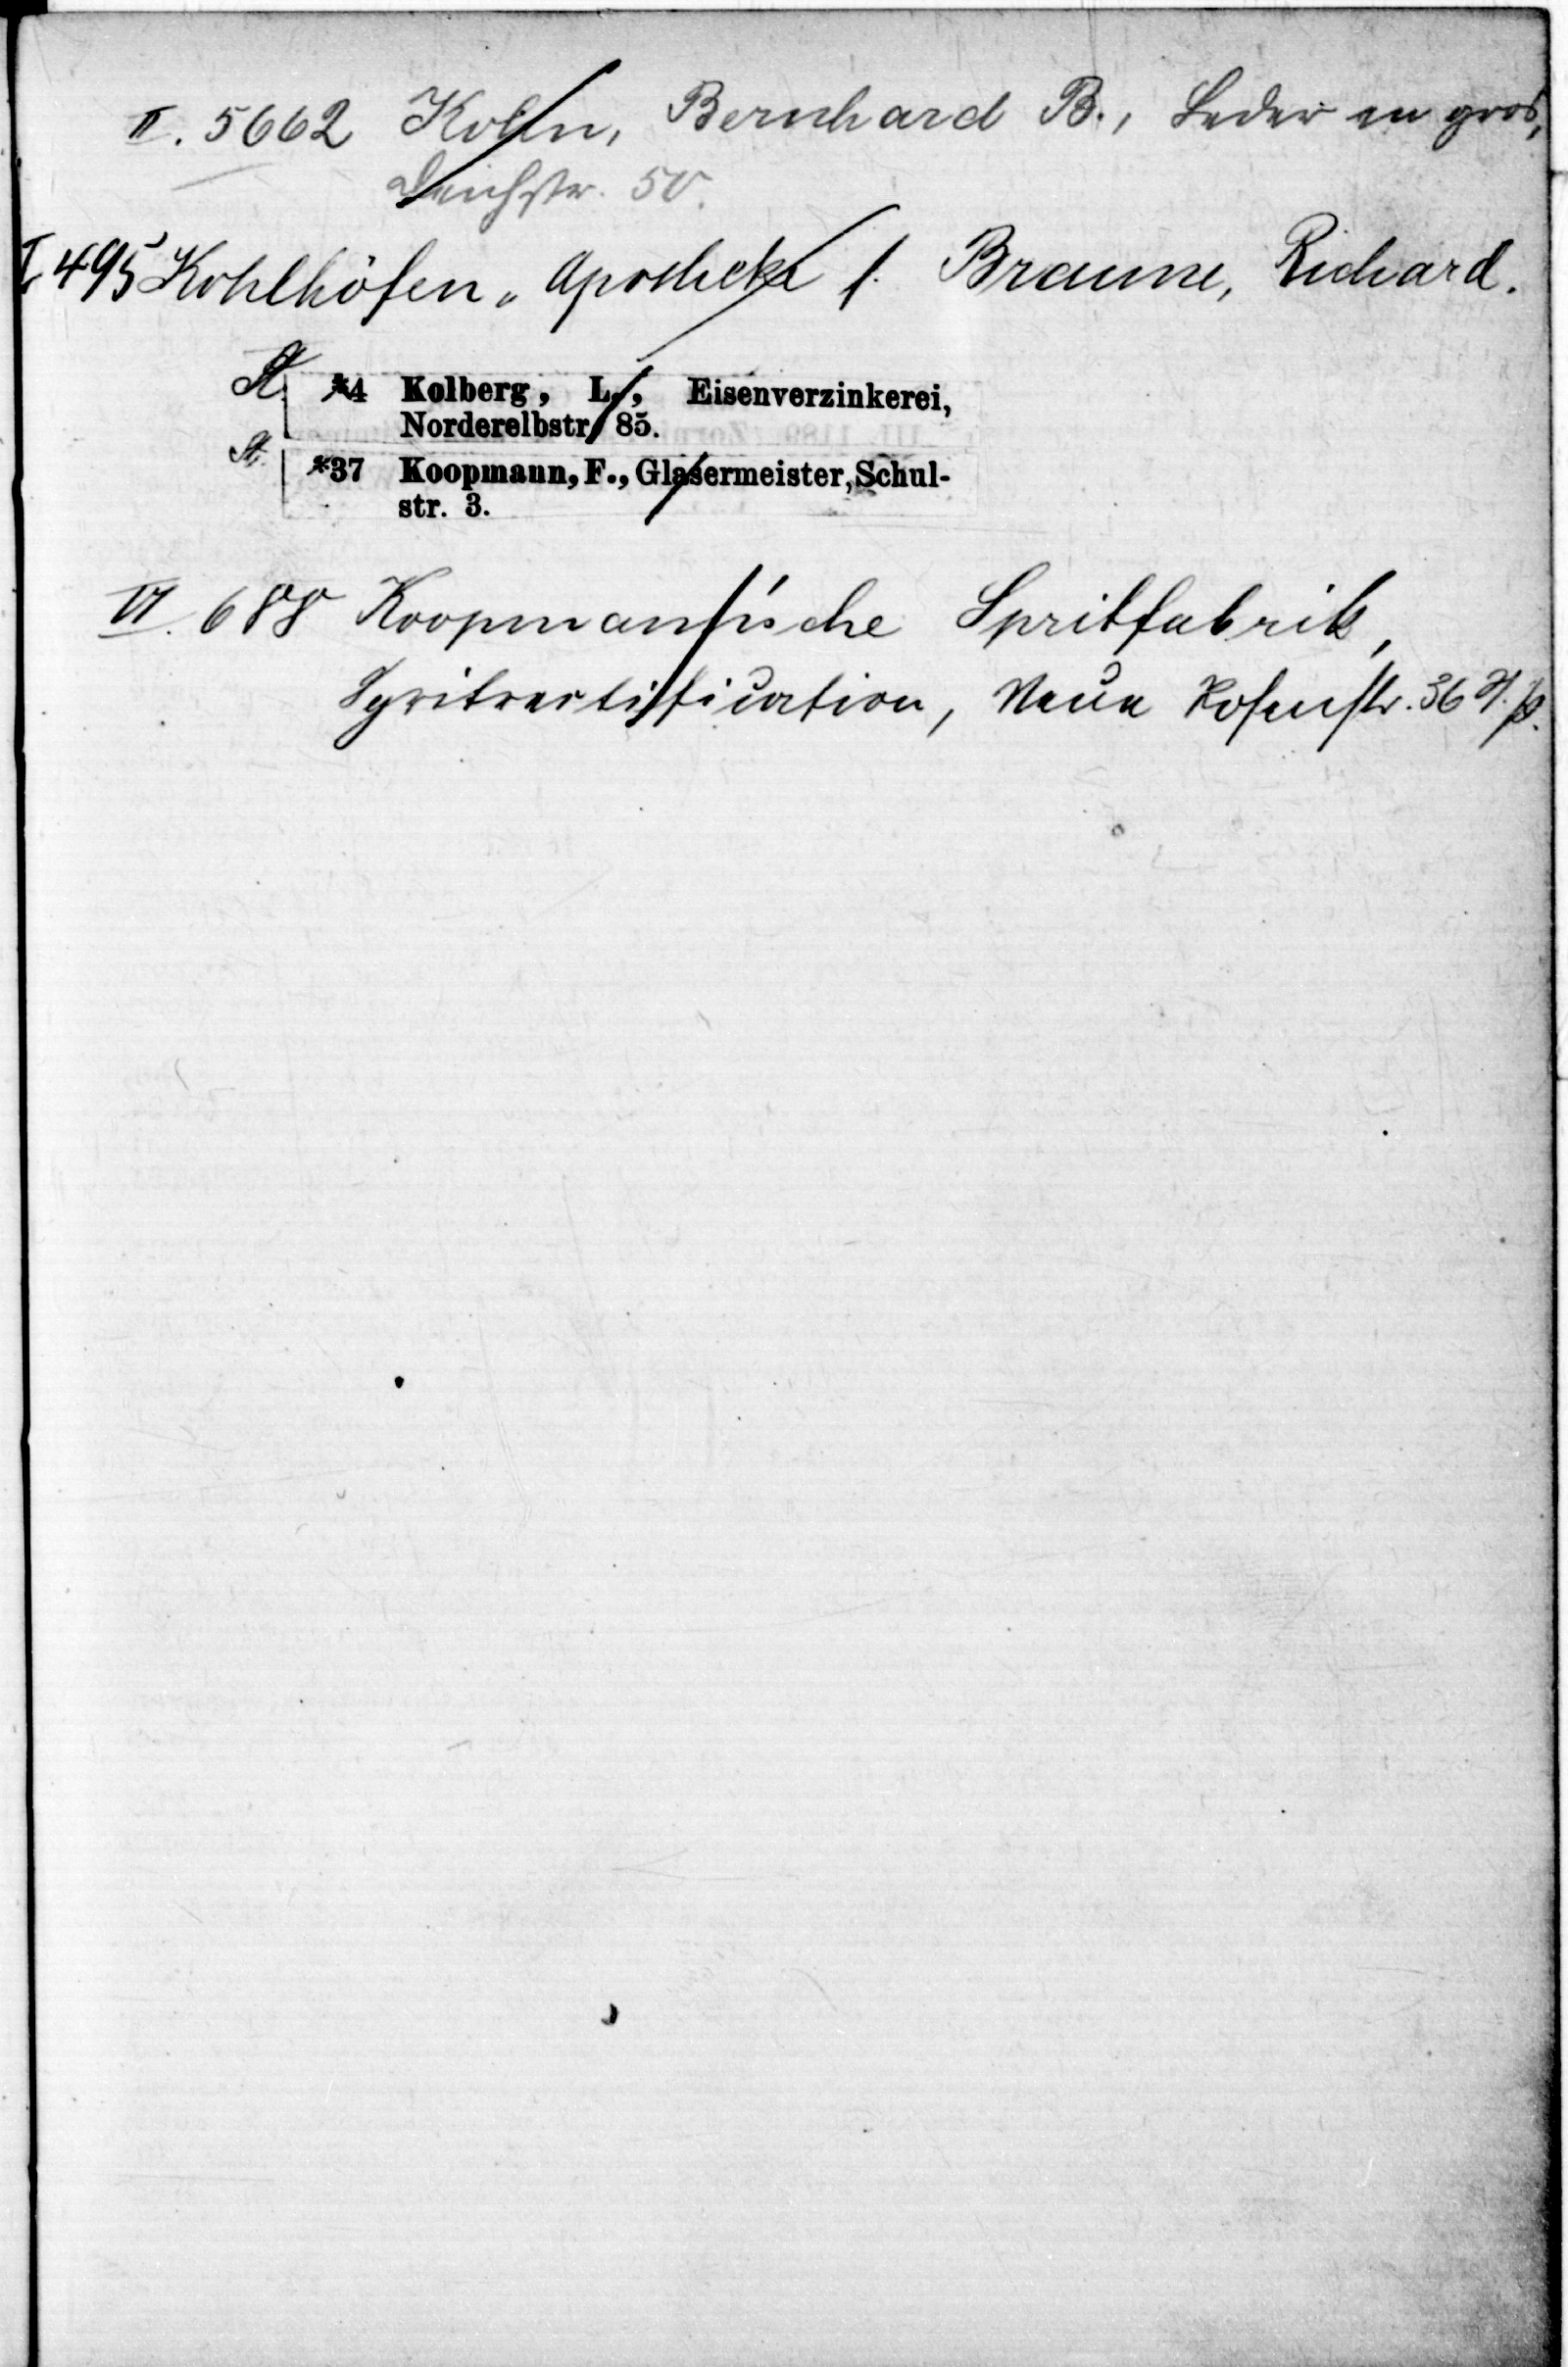 II. 5662 Kohn, Bernhard B., Leder en gros,
Deichstr. 50.
I 495 Kohlhöfen-Apotheke f. Braune, Richard.
St. *4 Kolberg, L., Eisenverzinkerei,
Norderelbstr. 85.
St. *37 Koopmann, F., Glasermeister, Schul-
str. 3.
VI. 688 Koopmann'sche Spritfabrik,
Spritrectification, Neue Rosenstr. 36